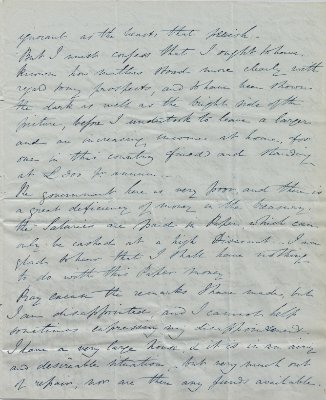 ignorant as the beasts that perish.
But I must confess that I ought to have
known how matters stood more clearly with
regard to my prospects, and to have been shown
the dark as well as the bright side of the
picture, before I undertook to leave a large
and an increasing income at home, for
one in this country fixed and standing
at
The government here is very poor, and there is
a great deficiency of money in the Treasury
the Salaries are Paid in Paper, which can
only be cashed at a high Discount. I am
glad to hear that I shall have nothing
to do with this Paper money
Pray excuse the remarks I have made, but
I am disappointed, and I cannot help
sometimes expressing my disappointment
I have a very large house, & it is in an airy
and desireable situation, but very much out
of repair, nor are there any funds available